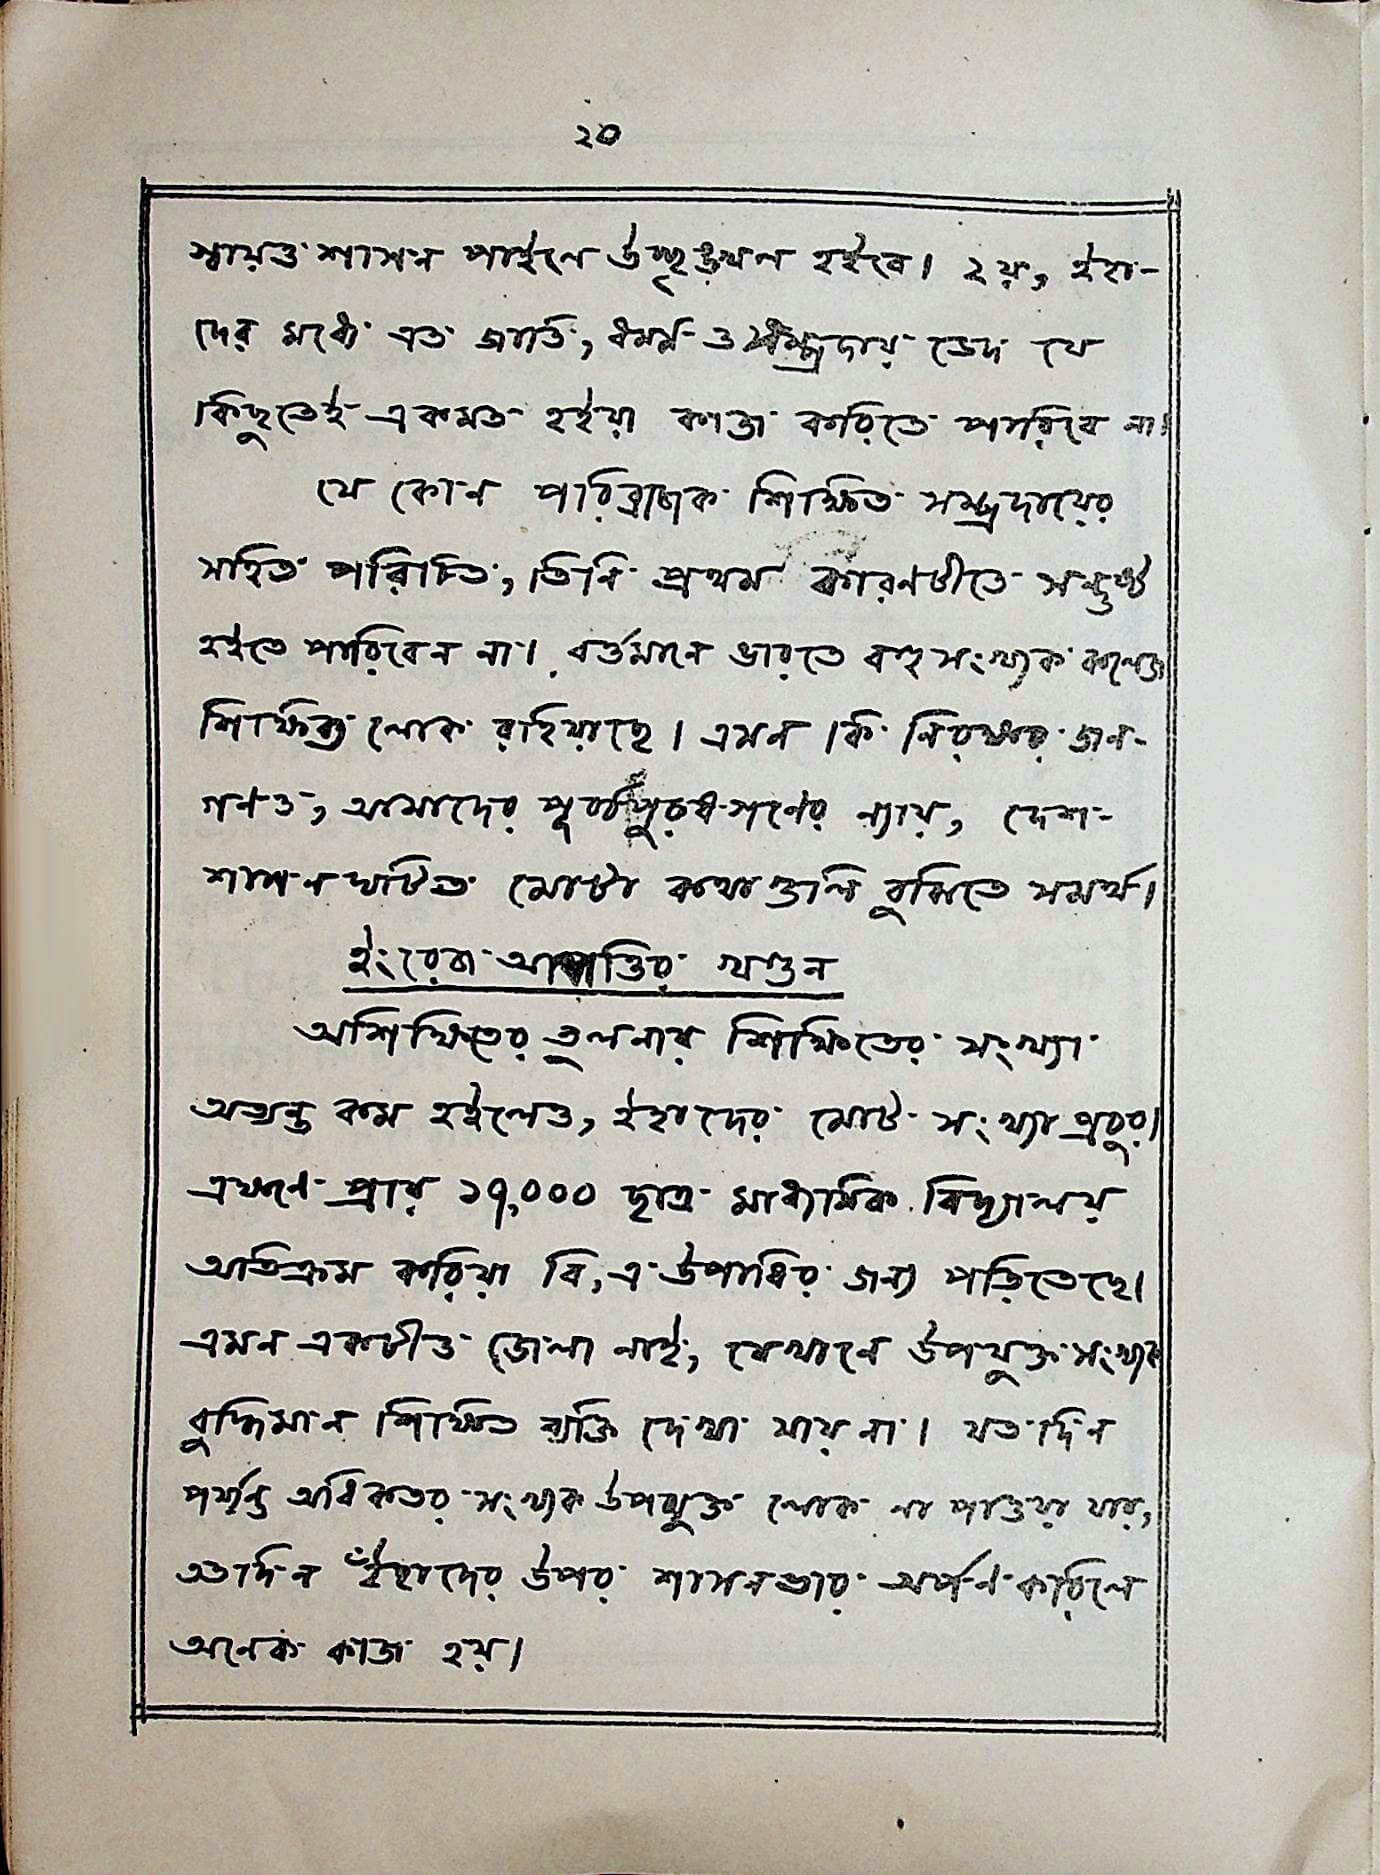 ২০
স্বায়ত্ত শাসন পাইলে উচ্ছৃঙ্খল হইবে। ২য়, ইহা-
দের মধ্যে এত জাতি, ধর্ম্ম ও সম্প্রদায় ভেদ যে
কিছুতেই একমত হইয়া কাজ করিতে পারিবে না।
যে কোন পরিব্রাজক শিক্ষিত সম্প্রদায়ের
সহিত পরিচিত, তিনি প্রথম কারণটীতে সন্তুষ্ট
হইতে পারিবেন না। বর্ত্তমানে ভারতে বহু সংখ্যক কলেজ
শিক্ষিত লোক রহিয়াছে। এমন কি নিরক্ষর জন-
গণও, আমাদের পূর্ব্বপুরুষগণের ন্যায়, দেশ-
শাসন ঘটিত মোটা কথাগুলি বুঝিতে সমর্থ।
ইংরেজ আপত্তির খণ্ডন
অশিক্ষিতের তুলনায় শিক্ষিতের সংখ্যা
অত্যন্ত কম হইলেও, ইহাদের মোট সংখ্যা প্রচুর।
এখানে প্রায় ১৭,০০০ ছাত্র মাধ্যমিক বিদ্যালয়
অতিক্রম করিয়া বি, এ উপাধির জন্য পড়িতেছে।
এমন একটীও জেলা নাই, যেখানে উপযুক্ত সংখ্যক
বুদ্ধিমান শিক্ষিত ব্যক্তি দেখা যায় না। যত দিন
পর্য্যন্ত অধিকতর সংখ্যক উপযুক্ত লোক না পাওয়া যায়,
ততদিন ইঁহাদের উপর শাসনভার অর্পণ করিলে
অনেক কাজ হয়।